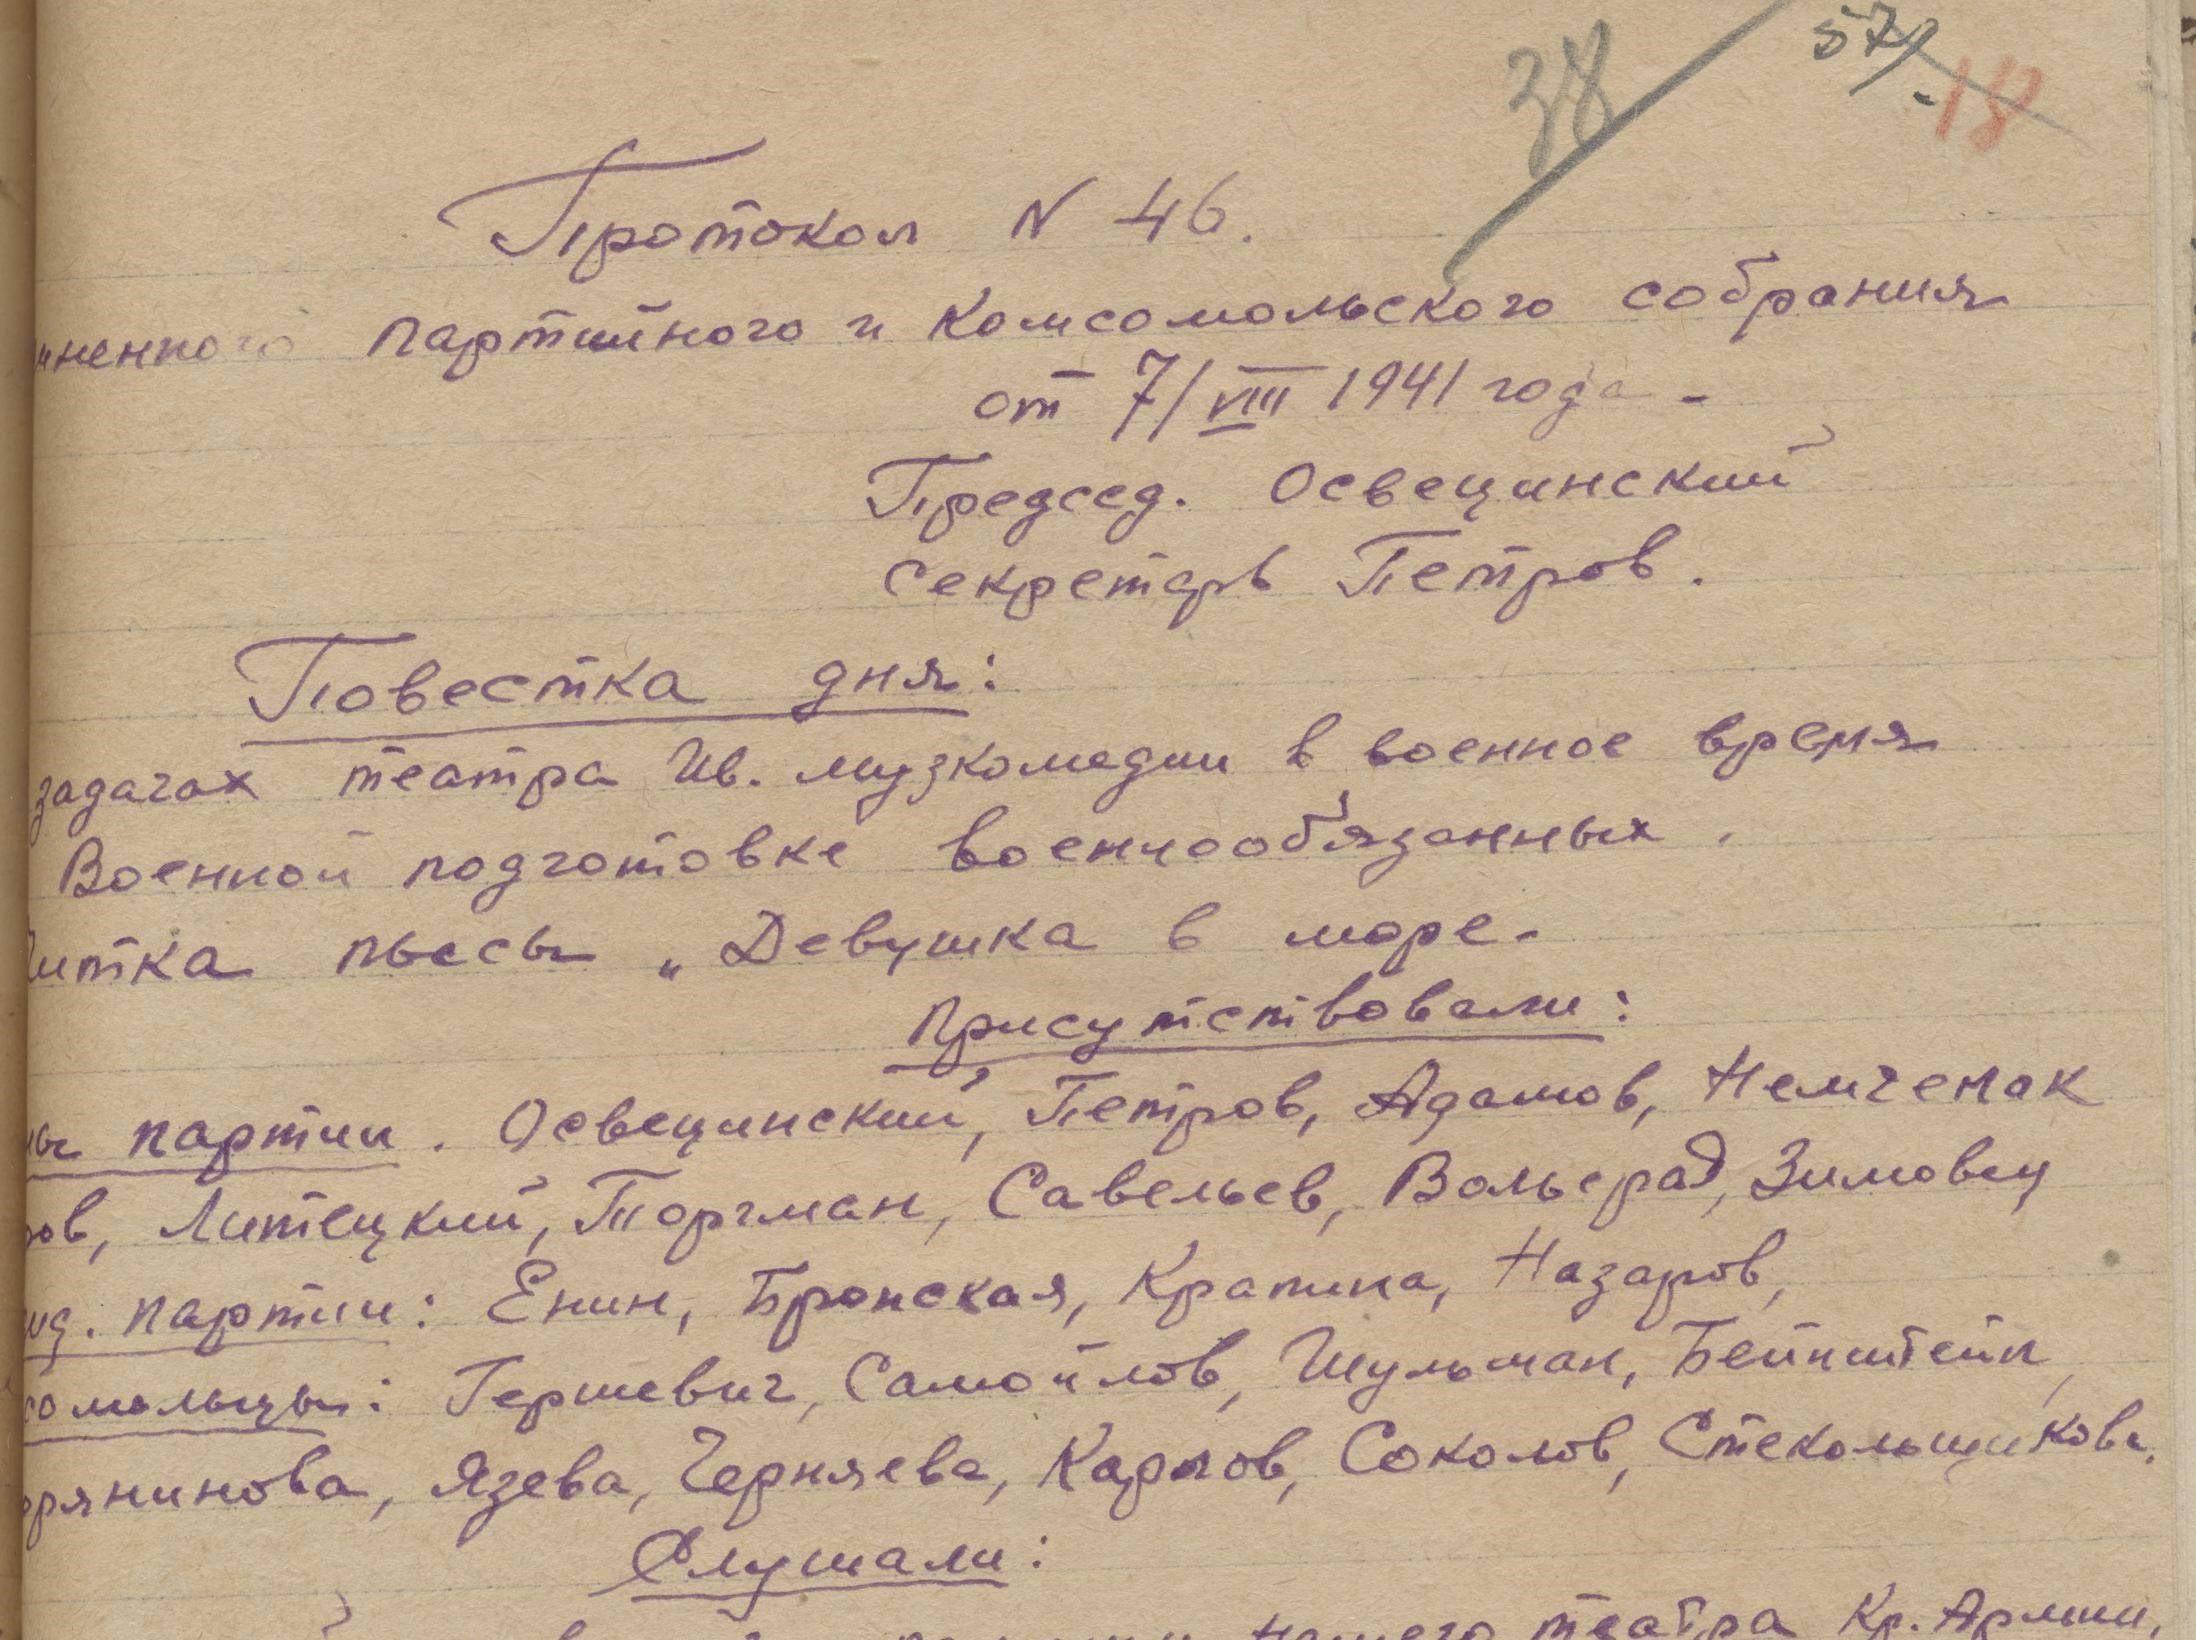 38
57
18
Протокол N 46.
партийного и комсомольского собрания
от 7/VIII 1941 года -
Председ. Освецинский
секретарь Петров.
Повестка дня:
задачах театра Ив. музкомедии в военное время
Военной подготовке военнооб'язанных.
читка пьесы „Девушка в море.
Присутствовали:
партии. Освецинский, Петров, Адамов, Немченок
ров, Литецкий, Торгман, Савельев, Зимовец
партии: Енин, Бронская, Крапина, Назаров,
сомольцы: Гершевич, Самойлов, Шульман, Бейнштейн,
рянинова, Язева, Черняева, Карпов, Соколов, Стекольщикова.
Слушали:
нашего театра Кр. Армии,